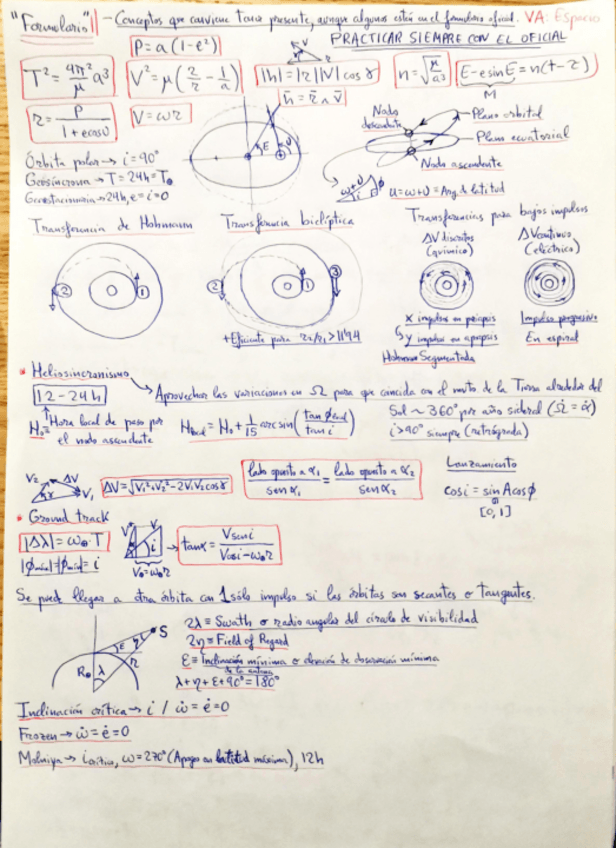 "Formulario" - Conceptos que conviene tener presente, aunque algunos estén en el formulario oficial. VA: Espacio
PRACTICAR SIEMPRE CON EL OFICIAL
P = a(1-e²)
T² = 4π²/μ a³
V² = μ(2/r - 1/a)
|h| = |r||V| cos γ
h̄ = r̄ ∧ v̄
n = √(μ/a³)
E - e sin E = n(t - τ)
M
r = P/(1 + e cos υ)
V = ωr
Nodo descendente
Plano orbital
Plano ecuatorial
Nodo ascendente
Órbita polar → i = 90°
Geosíncrona → T = 24h = T⊕
Geoestacionaria → 24h, e = i = 0
ω+υ i φ u = ω+υ = Arg. de latitud
Transferencia de Hohmann
Transferencia bielíptica
Transferencias para bajos impulsos
ΔV discretos (químico)
ΔV continuo (eléctrico)
2 1
2 1 3
+Eficiente para r₂/r₁ > 11'94
X impulsos en periapsis
y impulsos en apoapsis
Hohmann Segmentada
Impulso progresivo
En espiral
* Heliosincronismo
12 - 24h
Aprovechar las variaciones en Ω para que coincida con el movto de la Tierra alrededor del
Sol ~ 360° por año sideral (Ω̇ = α̇)
i > 90° siempre (retrógrada)
H₀ = Hora local de paso por el nodo ascendente
H local = H₀ + 1/15 arcsin(tan φ local / tan i)
V₂ ΔV V₁
ΔV = √(V₁² + V₂² - 2V₁V₂ cos γ)
lado opuesto a α₁ / sen α₁ = lado opuesto a α₂ / sen α₂
Lanzamiento
cos i = sin A cos φ
[0,1]
* Ground track
|Δλ| = ω⊕ · T
|φmín| = |φmáx| = i
V⊕ = ω⊕ r
tan α = V sen i / (V cos i - ω⊕ r)
Se puede llegar a otra órbita con 1 sólo impulso si las órbitas son secantes o tangentes.
S ε η r R⊕ λ
2λ ≡ Swath o radio angular del círculo de visibilidad
2η ≡ Field of Regard
ε ≡ Inclinación mínima o elevación de observación mínima
de la antena
λ + η + ε + 90° = 180°
Inclinación crítica → i / ω̇ = ė = 0
Frozen → ω̇ = ė = 0
Molniya → i crítica, ω = 270° (Apogeo en latitud máxima), 12h